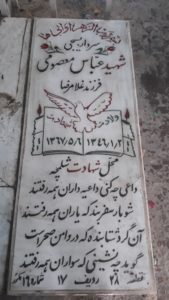 سردار بسیجی
شهید عباس معصومی
فرزند غلامرضا
ولادت شهادت
۱۳۴۶/۱/۲ ۱۳۶۷/۵/۶
محل شهادت شلمچه
داعی چه کنی داعیه داران همه رفتند
شو بار سفر بند که یاران همه رفتند
آن گرد شتابنده که در دامن صحراست
گوید چه نشینی که سواران همه رفتند
قطعه ۲۸ ردیف ۱۷ شماره ۱۶